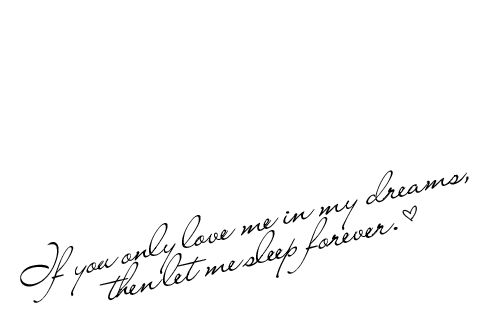 If you only love me in my dreams,
then let me sleep forever. ♡